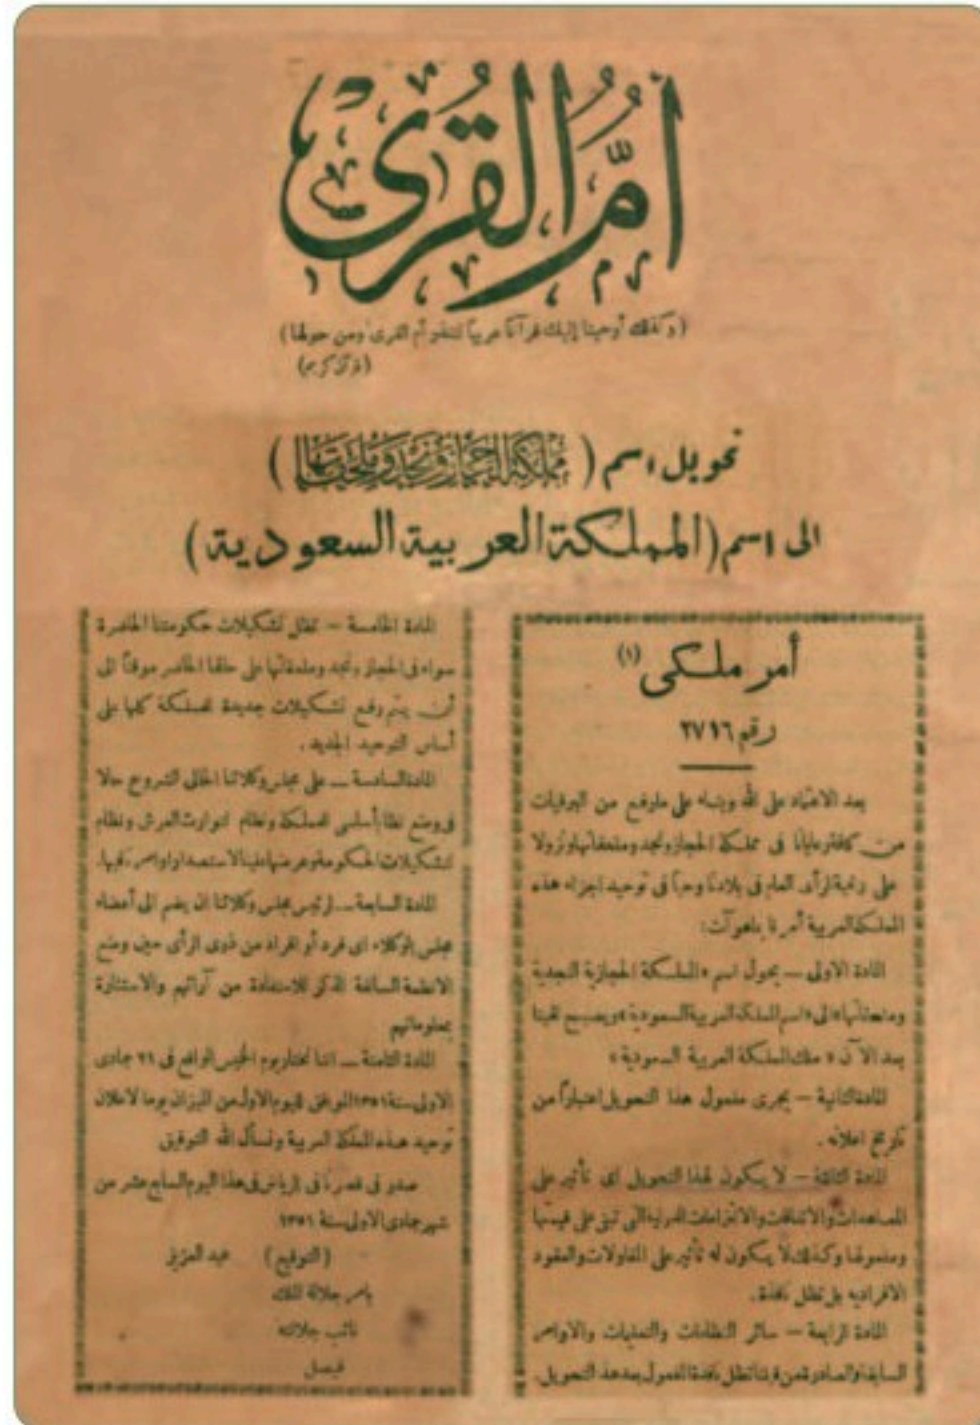 أم القرى
(وكذلك أوحينا إليك قرآنا عربياً لتنذر أم القرى ومن حولها)
(قرآن كريم)
تحويل اسم (مملكة الحجاز ونجد وملحقاتها)
الى اسم (المملكة العربية السعودية)
أمر ملكى (١)
رقم ٢٧١٦
بعد الاعتماد على الله وبناء على مارفع من البرقيات
من كافة رعايانا فى مملكة الحجاز ونجد وملحقاتها ونزولا
على رغبة الرأى العام فى بلادنا وحبا فى توحيد اجزاء هذه
المملكة العربية أمرنا بما هو آت:
المادة الاولى – يحول اسم «المملكة الحجازية النجدية
وملحقاتها» الى «اسم المملكة العربية السعودية» ويصبح لقبنا
بعد الآن «ملك المملكة العربية السعودية»
المادة الثانية – يجرى مفعول هذا التحويل اعتباراً من
تاريخ اعلانه.
المادة الثالثة – لا يكون لهذا التحويل اى تأثير على
المعاهدات والاتفاقات والالتزامات الدولية التى تبقى على قيمتها
ومفعولها وكذلك لا يكون له تأثير على المقاولات والعقود
الافراديه بل تظل نافذة.
المادة الرابعة – سائر النظامات والتعليمات والاوامر
السابقة والصادرة من قبلنا تظل نافذة المفعول بعد هذا التحويل.
المادة الخامسة – تظل تشكيلات حكومتنا الحاضرة
سواء فى الحجاز ونجد وملحقاتها على حالها الحاضر موقتاً الى
أن يتم وضع تشكيلات جديدة للمملكة كلها على
أساس التوحيد الجديد.
المادة السادسة – على مجلس وكلائنا الحالى الشروع حالا
فى وضع نظام أساسى للمملكة ونظام لتوارث العرش ونظام
لتشكيلات الحكومة وعرضها علينا لاستصدار اوامرنا فيها.
المادة السابعة – لرئيس مجلس وكلائنا ان يضم الى أعضاء
مجلس الوكلاء اى فرد أو افراد من ذوى الرأى حين وضع
الانظمة السالفة الذكر للاستفادة من آرائهم والاستنارة
بمعلوماتهم
المادة الثامنة – اننا نختار يوم الخميس الواقع فى ٢١ جمادى
الاولى سنة ١٣٥١ الموافق لليوم الاول من الميزان يوما لاعلان
توحيد هذه المملكة العربية ونسأل الله التوفيق
صدر فى قصرنا فى الرياض فى هذا اليوم السابع عشر من
شهر جمادى الاولى سنة ١٣٥١
(التوقيع) عبد العزيز
بامر جلالة الملك
نائب جلالته
فيصل